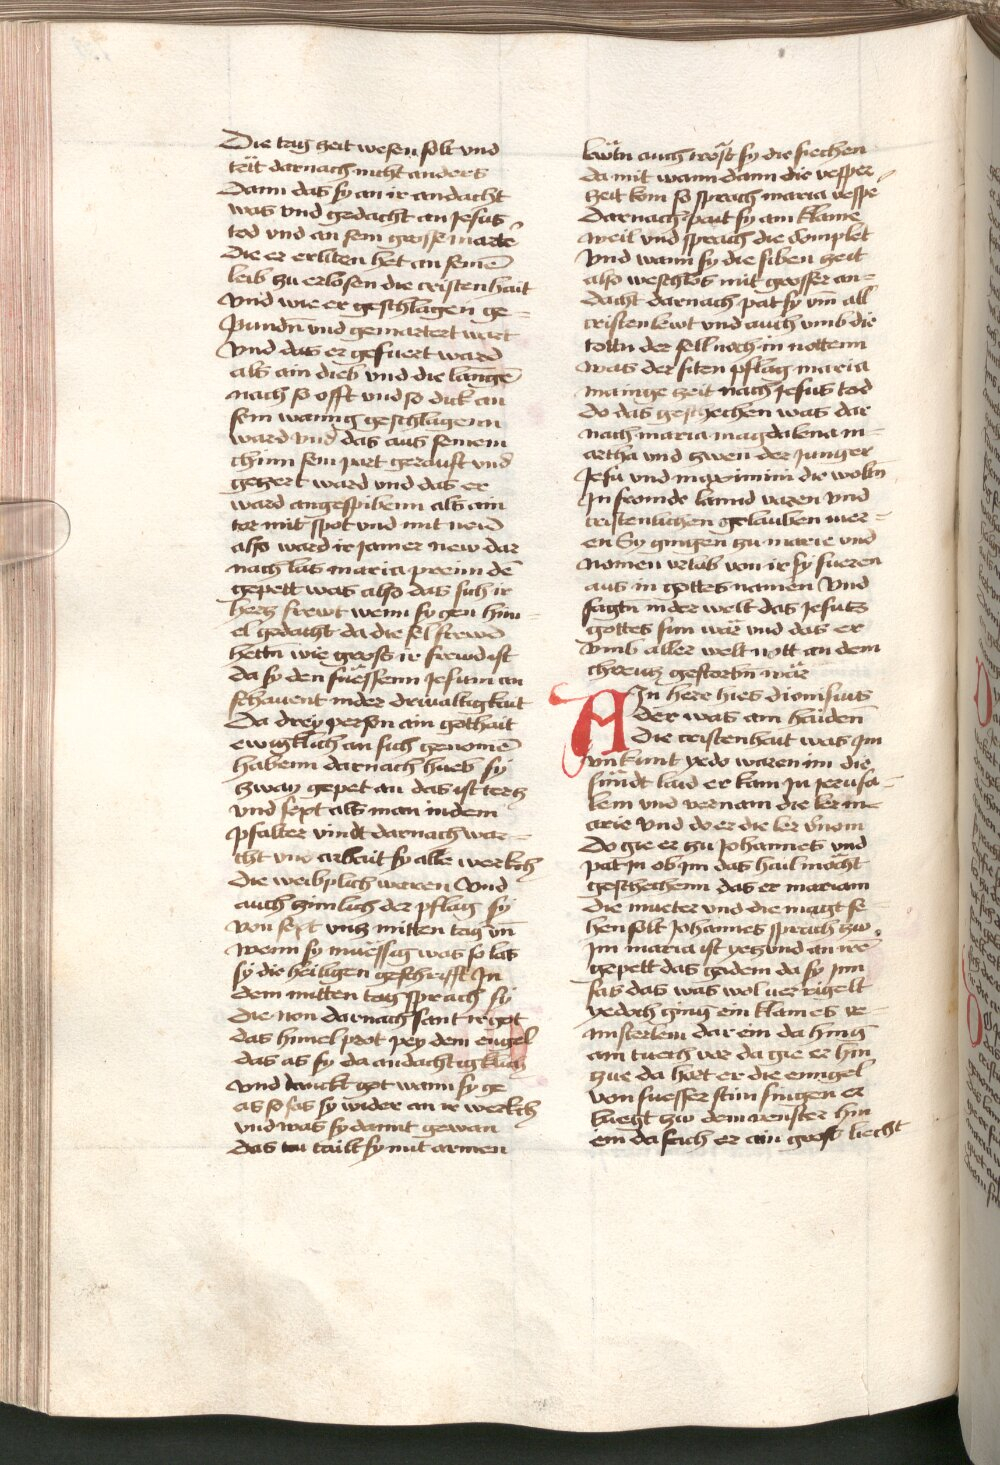 Die tag zeit wesen solt vnd
tëtt darnach nicht anders
Dann das sy an ir andacht
was vnd gedacht an Jesus
tod vnd an sein grosse marteˀ
Die er erliten het an seinē
leib zu erlösen die cristenhait
Vnd wie er geschlagen ge-
pundn̄ vnd gemartert wart
Vnd das er gefuert ward
als ain dieb vnd die langē
nach so offt vnd so dick an
sein wanng geschlagenn
ward vnd das aus seinem
chinn sein part gerauft vnd
gezert ward vnd das er
ward angespibenn als ain
tor mit spot vnd mit
also ward ir jamer new dar
nach las maria preinn dē
gepett was also das sich ir
hertz frewt wenn sy gen him-
el gedacht da die sel frewd
hettn wie gross ir frewd ist
da sy den süessenn Jesum an
schauent in der driualtigkait
Da drey person ain gothait
ewigklich an sich genomē
habenn darnach hueb sy
zway gepet an das ist tertz
vnd sext als man in dem
psalter vindt darnach war-
cht vnd arbait sy alle werkch
die weiblich waren Vnd
auch zimlich der pflag sy
von sext vntz mitten tag vn̄
wenn sy müessig was so las
sy die heiligen geschrifft In
dem mitten tag sprach sy
die non darnach sant ir got
das himelprot pey dem engel
das as sy da andachtigklich
vnd danckt got wann sy ge
as so sas sy wider an ir werkch
vnd was sy damit gewan
das tailt sy mit armen
lewtn auch tröst sy die siechen
da mit wann dann die vesper-
zeit kom so sprach maria vespe
Darnach pait sy ain klaine
weil vnd sprach die complet
Vnd wann sy die siben zeit
also weschlos mit grosser an-
dacht darnach pat sy vm all
cristen lewt vnd auch vmb die
totn der sell noch in nottenn
was der siten pflag maria
mainge zeit nach Jesus tod
do das geschechen was dar
nach maria magdalena m-
artha vnd zwen der junger
Jesu vnd maximini die woltn
In fromde lannd varen vnd
cristenlichen gelauben mer-
en Sy gingen zu marie vnd
nomen vrlab von ir sy fueren
aus in gottes namen Vnd
sagtn in der welt das Jesus
gottes sun wär vnd das er
vmb aller welt nott an dem
chreutz gestorbn wär
Ain here hies dionisius
Der was ain haiden
Die cristenhait was Im
vnkunt yedo waren im die
sünndt laid er kam In jerusa-
lem vnd vernam die ler m-
arie Vnd do er die ler v̄nom
Do gie er zu Johannes vnd
pat In ob im das hail möcht
geschechenn das er mariam
die mueter vnd die magt se-
hen solt Johannes sprach zw.
Im maria ist yetzund an irē
gepett das gadem da sy inn
sas das was wol uerrigelt
yedoch ging ein klaines ve-
insterlein dar ein da hing
ain tuech vor da gie er hin
zue da hört er die enngel
von suesser stim singen er
luegt zw dem venster hin
ein da sach er ain gross liecht